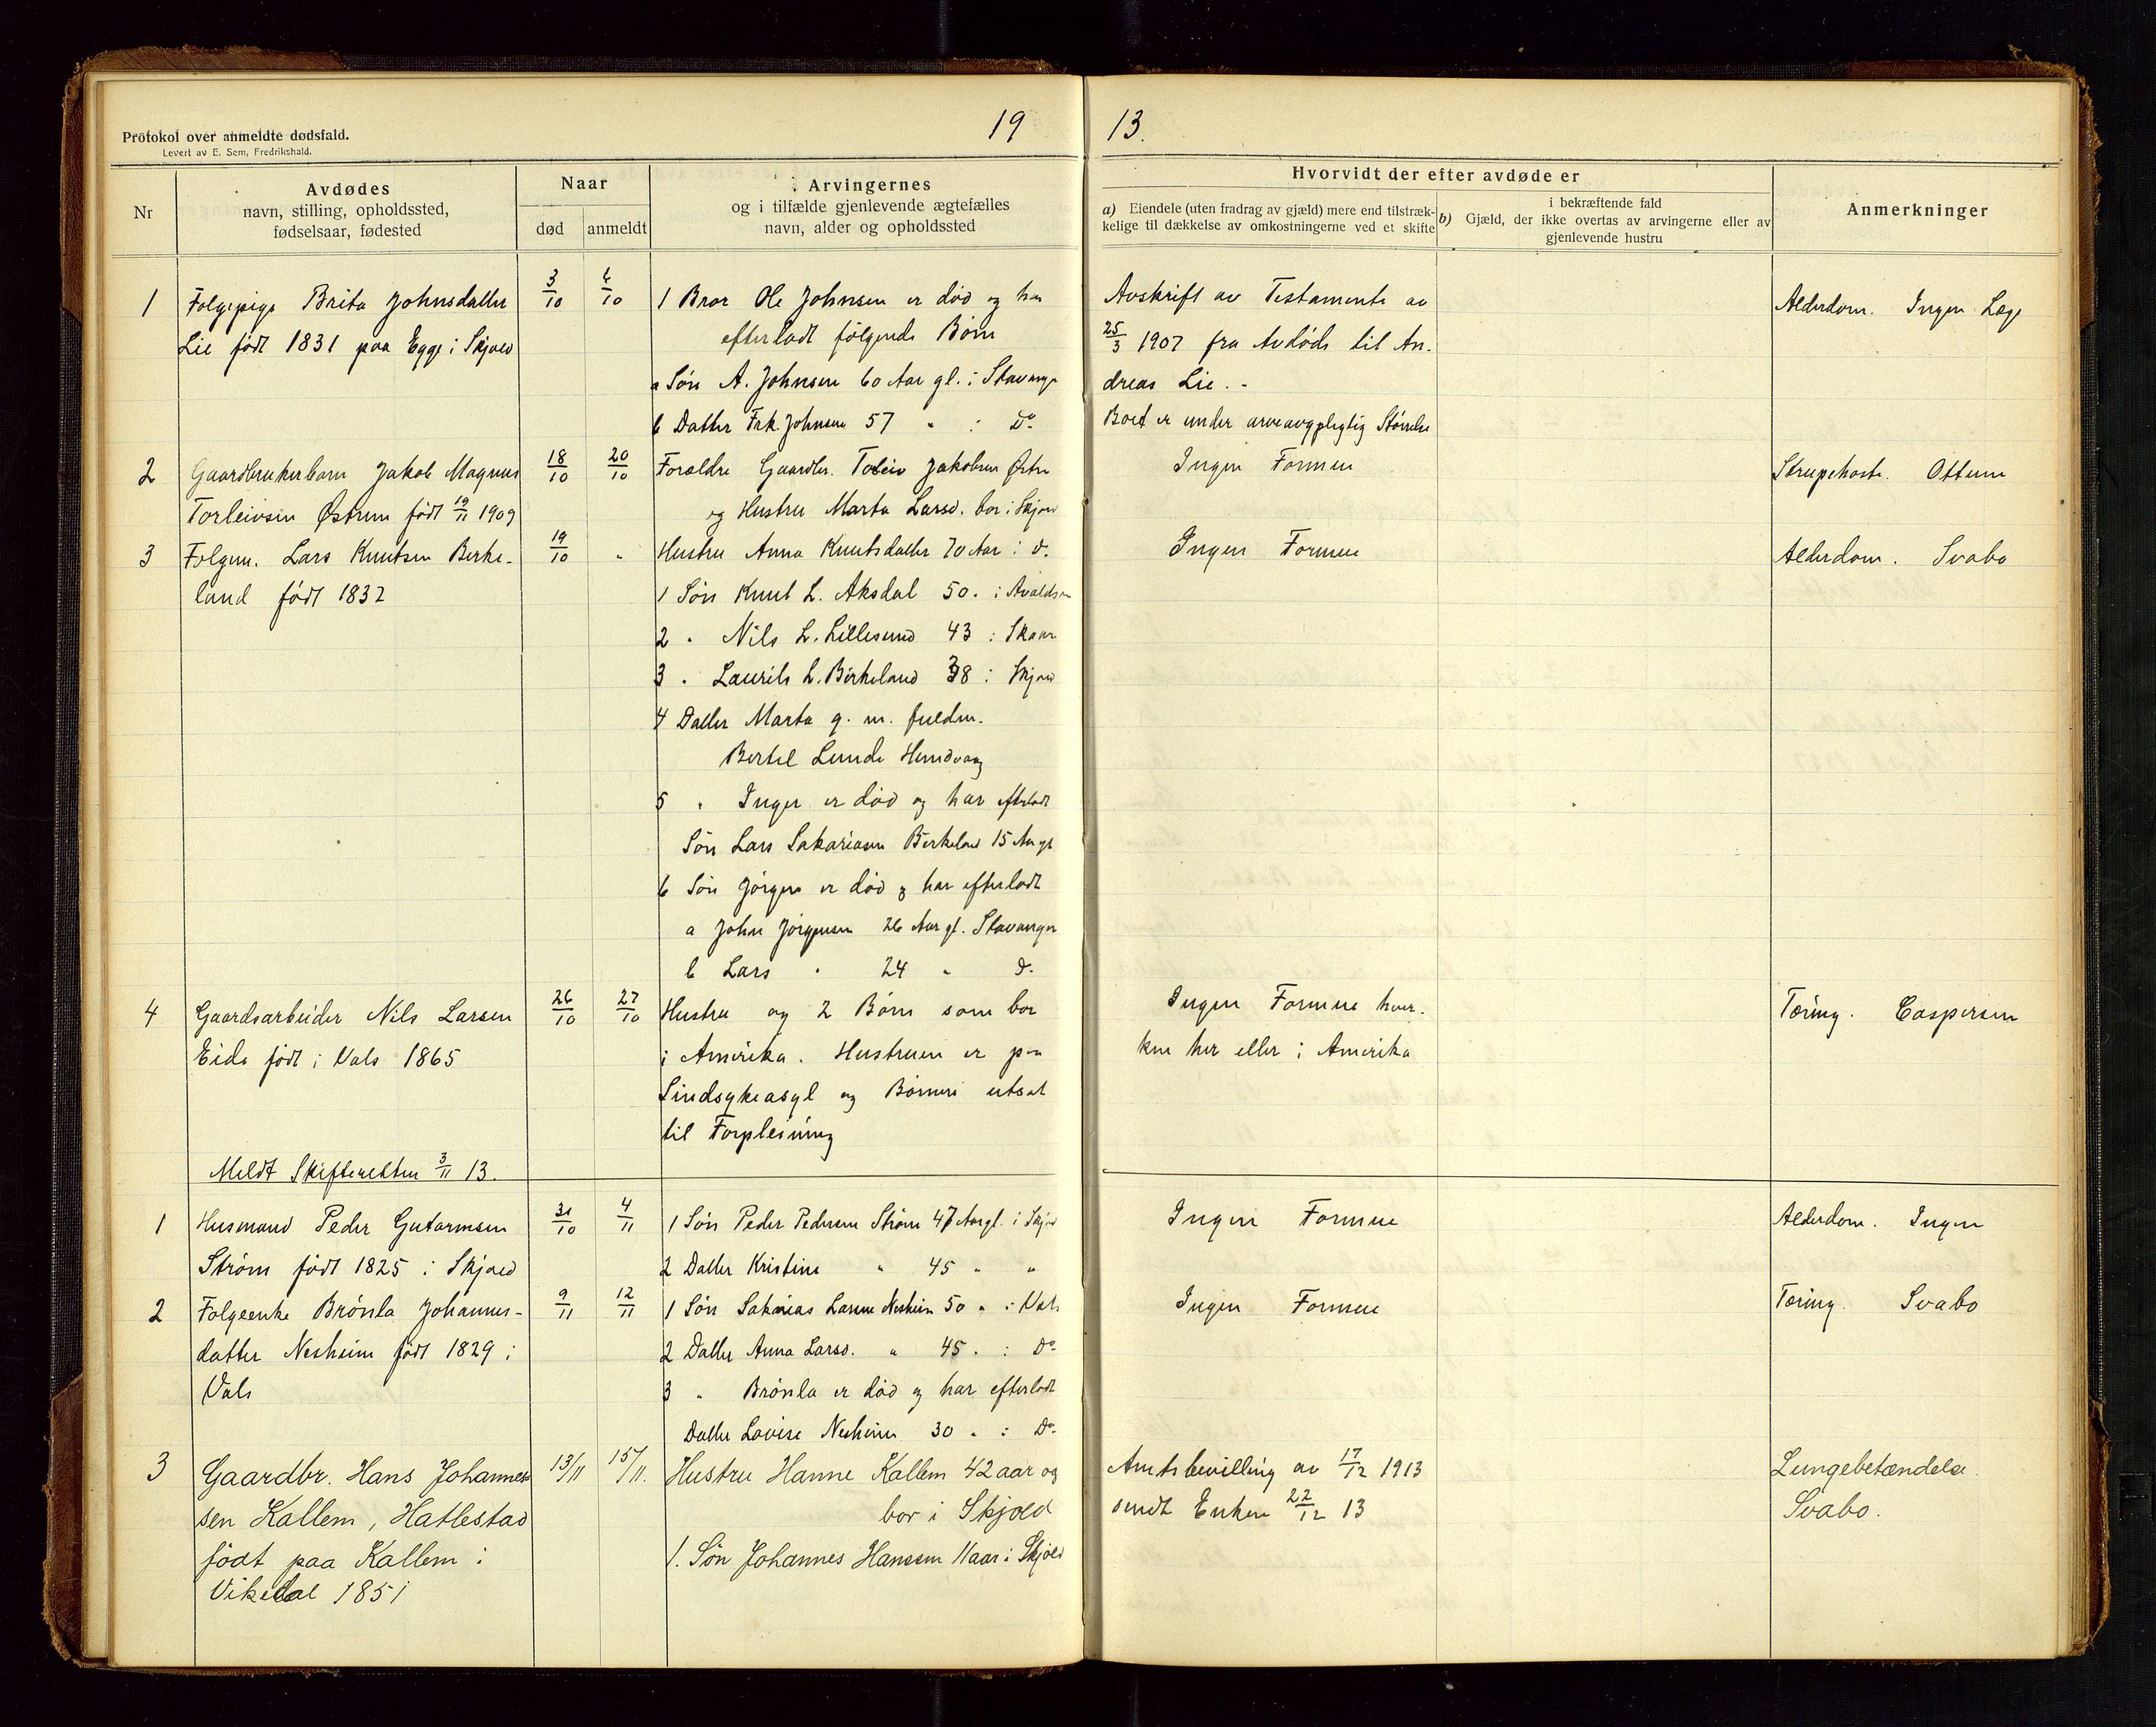 Protokol over anmeldte dødsfald.
Levert av E. Sem, Fredrikshald.
19
13.
Nr
Avdødes
navn, stilling, opholdssted,
fødselsaar, fødested
Naar
død
anmeldt
Arvingernes
og i tilfælde gjenlevende ægtefælles
navn, alder og opholdssted
Hvorvidt der efter avdøde er
a) Eiendele (uten fradrag av gjæld) mere end tilstræk-
kelige til dækkelse av omkostningerne ved et skifte
i bekræftende fald
b) Gjæld, der ikke overtas av arvingerne eller av
gjenlevende hustru
Anmerkninger
1
Folgepige Brita Johnsdatter
Lie født 1831 paa Egge i Skjold
3/10
6/10
1 Bror Ole Johnsen er død og har
efterladt følgende Børn
a Søn A. Johnsen 60 Aar gl. i Stavanger
b Datter Frk. Johnsen 57 " : Do
Avskrift av Testamente av
25/3 1907 fra Avdøde til An-
dreas Lie. -
Boet er under arveavgpligtig Størrelse
Alderdom. Ingen Læge
2
Gaardbrukerbarn Jakob Magnus
Torleivsen Østrem født 19/11 1909
18/10
20/10
Forældre Gaardbr. Toleiv Jakobsen Østre
og Hustru Marta Larsd. bor i Skjold
Ingen Formue
Strupehoste. Ottum
3
Folgem. Lars Knutsen Berke-
land født 1832
19/10
"
Hustru Anna Knutsdatter 70 Aar i d.
1 Søn Knut L. Aksdal 50. i Avaldsn
2 " Nils L. Lillesund 43 : Skaar
3 " Laurits L. Birkeland 38 i Skjold
4 Datter Marta g. m. fuldm.
Bertel Lunde Hundvaag
5 " Inger er død og har efterladt
Søn Lars Sakariasen Berkeland 15 Aar gl
6 Søn Jørgen er død og har efterladt
a John Jørgensen 26 Aar gl. Stavanger
b Lars " 24 " d.
Ingen Formue
Alderdom. Svabo
4
Gaardsarbeider Nils Larsen
Eide født i Vats 1865
26/10
27/10
Hustru og 2 Børn som bor
i Amerika. Hustruen er paa
Sindsykeasyl og Børnene utsat
til Forpleining
Ingen Formue hver-
ken her eller i Amerika
Tæring. Caspersen
Meldt Skifteretten 3/11 13.
1
Husmand Peder Gutormsen
Strøm født 1825 i Skjold
31/10
4/11
1 Søn Peder Pedersen Strøm 47 Aar gl. i Skjold
2 Datter Kristine " 45 " "
Ingen Formue
Alderdom. Ingen
2
Folgeenke Brønla Johannes-
datter Nesheim født 1829 i
Vats
9/11
12/11
1 Søn Sakarias Larsen Nesheim 50 " : Vats
2 Datter Anna Larsd. " 45 " : Do
3 " Brønla er død og har efterladt
Datter Lovise Nesheim 30 " : Do
Ingen Formue
Tæring. Svabo
3
Gaardbr. Hans Johannes-
sen Kallem, Hatlestad
født paa Kallem i
Vikedal 1851
13/11
15/11.
Hustru Hanne Kallem 42 aar og
bor i Skjold
1. Søn Johannes Hanssen 11 aar i Skjold
Amtsbevilling av 17/12 1913
sendt Enken 22/12 13
Lungebetændelse.
Svabo.